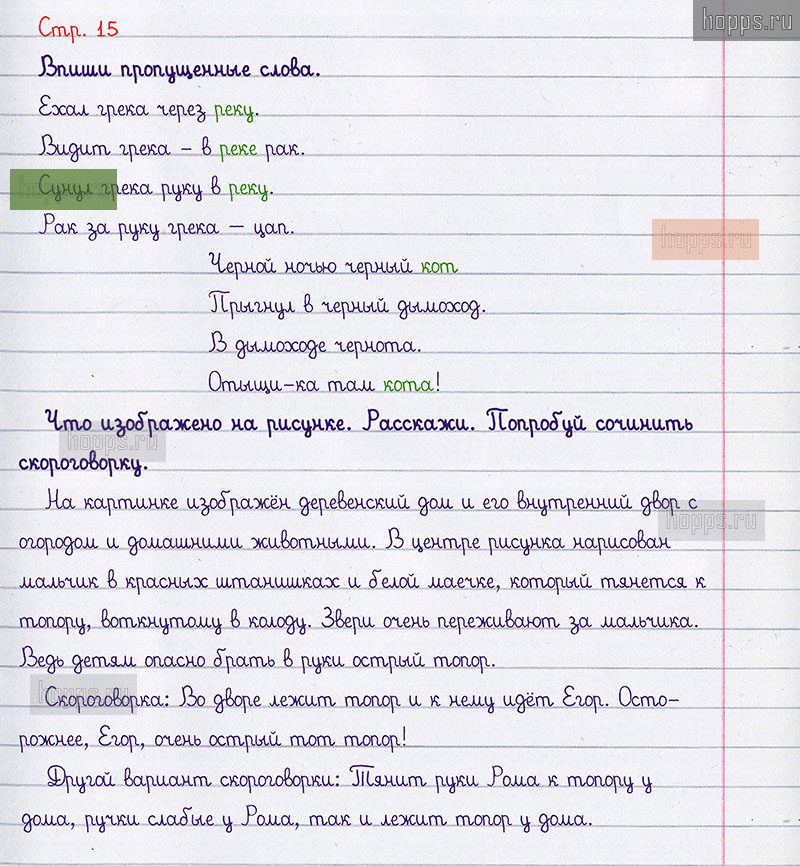 hopps.ru
Стр. 15
Впиши пропущенные слова.
Ехал грека через реку.
Видит грека – в реке рак.
Сунул грека руку в реку.
Рак за руку грека – цап.
hopps.ru
Черной ночью черный кот
Прыгнул в черный дымоход.
В дымоходе чернота.
Отыщи-ка там кота!
Что изображено на рисунке. Расскажи. Попробуй сочинить
hopps.ru
скороговорку.
На картинке изображён деревенский дом и его внутренний двор с
hopps.ru
огородом и домашними животными. В центре рисунка нарисован
мальчик в красных штанишках и белой маечке, который тянется к
топору, воткнутому в колоду. Звери очень переживают за мальчика.
Ведь детям опасно брать в руки острый топор.
hopps.ru
Скороговорка: Во дворе лежит топор и к нему идёт Егор. Осто-
рожнее, Егор, очень острый тот топор!
Другой вариант скороговорки: Тянит руки Рома к топору у
дома, ручки слабые у Рома, так и лежит топор у дома.